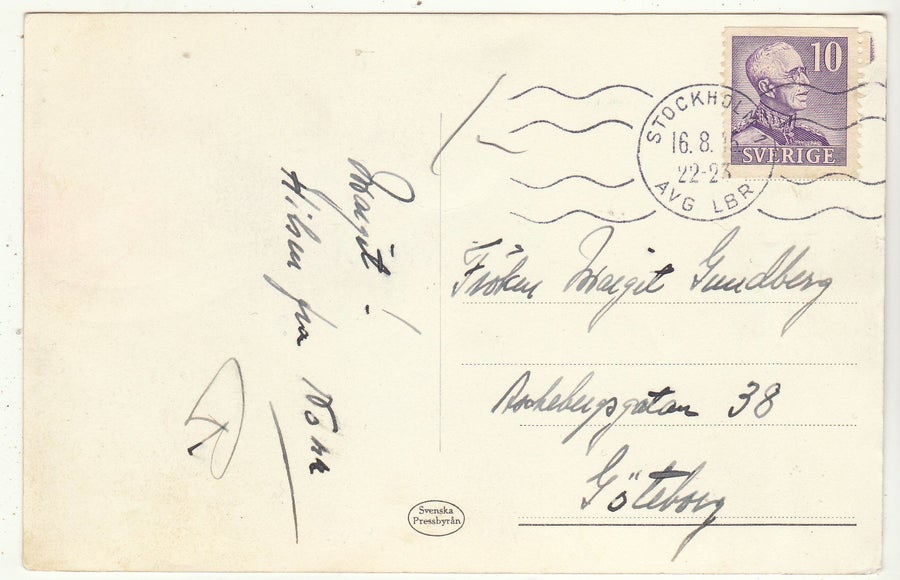 10
SVERIGE
STOCKHOLM
16. 8.
22-23
AVG LBR
Margit -
Hilsen fra
Fröken Margit Gundberg
Aschebergsgatan 38
Göteborg
Svenska
Pressbyrån